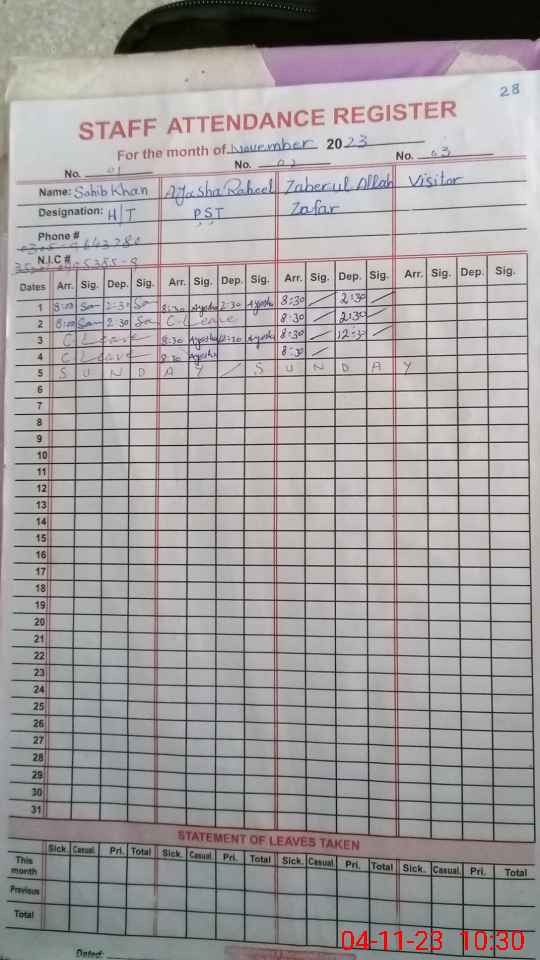 28
STAFF ATTENDANCE REGISTER
For the month of November 2023
No. 01 No. 02 No. 03
Name: Sahib Khan Ayasha Raheel Zaberul Allah Visitor
Designation: H/T P.S.T Zafar
Phone #
N.I.C #
Dates Arr. Sig. Dep. Sig. Arr. Sig. Dep. Sig. Arr. Sig. Dep. Sig. Arr. Sig. Dep. Sig.
1 8:00 Sa 2:30 Sa 8:30 Ayesha 2:30 Ayesha 8:30 2:30
2 8:00 Sa 2:30 Sa C. Leave 8:30 2:30
3 C Leave 8:30 Ayesha 12:30 Ayesha 8:30 12:30
4 C Leave 8:30 Ayesha 8:30
5 S U N D A Y / S U N D A Y
6
7
8
9
10
11
12
13
14
15
16
17
18
19
20
21
22
23
24
25
26
27
28
29
30
31
STATEMENT OF LEAVES TAKEN
Sick. Casual. Pri. Total Sick. Casual. Pri. Total Sick. Casual. Pri. Total Sick. Casual. Pri. Total
This month
Previous
Total
Dated:
04-11-23 10:30